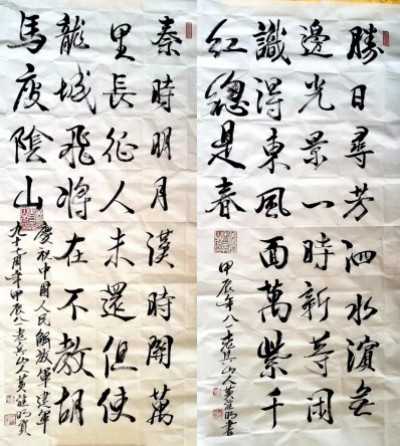 勝日尋芳泗水濱無
邊光景一時新等闲
識得東風面萬紫千
紅總是春
甲辰年八一老兵山人黄
秦時明月漢時関萬
里長征人未還但使
龍城飛将在不教胡
馬度陰山
慶祝中国人民解放軍建軍
九十七周年甲辰八一老兵山人黄